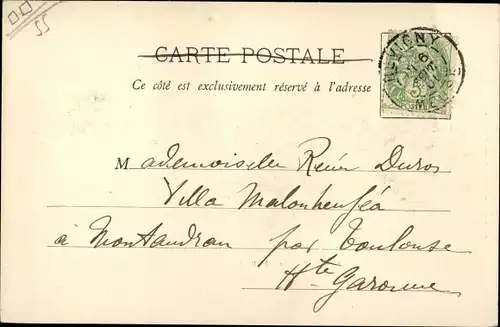 55
CARTE POSTALE
Ce côté est exclusivement réservé à l'adresse
Mademoiselle Duros
Villa
à Montaudran par Toulouse
Hte Garonne